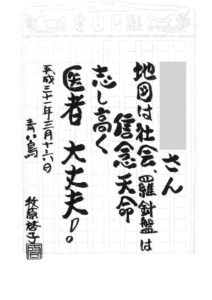 さん
地図は社会、羅針盤は
信念天命
志し高く
医者 大丈夫!。
平成三十一年三月十六日
青い鳥
牧原啓子